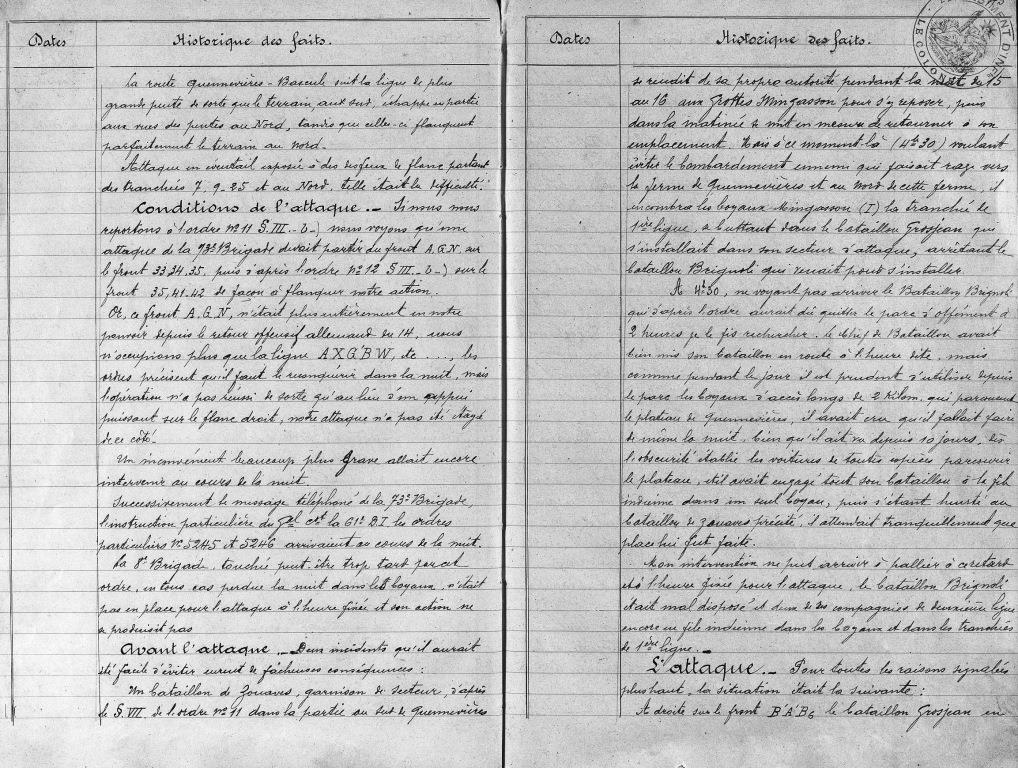 Dates
Historique des faits.
La route Quennevières - Bascule suit la ligne de plus
grande pente de sorte que le terrain au sud, échappe en partie
aux vues des pentes au Nord, tandis que celles-ci flanquent
parfaitement le terrain au nord.
Attaque en éventail exposée à des feux de flanc partant
des tranchées 7.9.25 et au Nord, telle était la difficulté.
Conditions de l'attaque. - Si nous nous
reportons à l'ordre n° 11 §.III - b -) nous voyons qu'une
attaque de la 73e Brigade devait partir du front A.G.N. sur
le front 33.34.35. puis d'après l'ordre n° 12 § III - b -) sur le
front 35.41.42 de façon à flanquer notre action.
Or, ce front A.G.N, n'était plus entièrement en notre
pouvoir depuis le retour offensif allemand de 14, nous
n'occupions plus que la ligne A X G B W, etc ...., les
ordres précisent qu'il faut le reconquérir dans la nuit, mais
l'opération n'a pas réussi de sorte qu'au lieu d'un appui
puissant sur le flanc droit, notre attaque n'a pas été étayée
de ce côté.
Un inconvénient beaucoup plus grave allait encore
intervenir au cours de la nuit.
Successivement le message téléphoné de la 73e Brigade,
l'instruction particulière du Gal Ct la 61e D.I. les ordres
particuliers N° 5245 et 5246 arrivaient au cours de la nuit.
La 8e Brigade, touchée peut-être trop tard par cet
ordre, en tous cas perdue la nuit dans les boyaux, n'était
pas en place pour l'attaque à l'heure fixée et son action ne
se produisit pas
Avant l'attaque. - Deux incidents qu'il aurait
été facile d'éviter eurent de fâcheuses conséquences :
Un bataillon de Zouaves, garnison de secteur, d'après
le §. VII. de l'ordre n° 11 dans la partie au sud de Quennevières
Dates
Historique des faits.
se rendit de sa propre autorité pendant la nuit de 15
au 16 aux Grottes Mingasson pour s'y reposer, puis
dans la matinée se mit en mesure de retourner à son
emplacement. Mais à ce moment-là (4h30) voulant
éviter le bombardement ennemi qui faisait rage vers
la ferme de Quennevières et au nord de cette ferme, il
encombra les boyaux Mingasson (I) la tranchée de
1ère ligne, se buttant dans le bataillon Grosjean qui
s'installait dans son secteur d'attaque, arrêtant le
bataillon Brignoli qui venait pour s'installer.
A 4h50, ne voyant pas arriver le Bataillon Brignoli
qui d'après l'ordre aurait dû quitter le parc d'Offémont à
2 heures je le fis rechercher. Le Chef de Bataillon avait
bien mis son bataillon en route à l'heure dite, mais
comme pendant le jour il est prudent d'utiliser depuis
le parc les boyaux d'accès longs de 2 Kilom. qui parcourent
le plateau de Quennevières, il avait cru qu'il fallait faire
de même la nuit, bien qu'il ait vu depuis 10 jours, dès
l'obscurité établie les voitures de toutes espèces parcourir
le plateau, et il avait engagé tout son bataillon à la file
indienne dans un seul boyau, puis s'étant heurté au
bataillon de Zouaves précité, il attendait tranquillement que
place lui fut faite.
Mon intervention ne put arriver à pallier à ce retard
et à l'heure fixée pour l'attaque, le bataillon Brignoli
était mal disposé et deux de ses compagnies de deuxième ligne
encore en file indienne dans les boyaux et dans les tranchées
de 1ère ligne. -
L'attaque. - Pour toutes les raisons signalées
plus haut, la situation était la suivante :
A droite sur le front B A B6 le bataillon Grosjean en